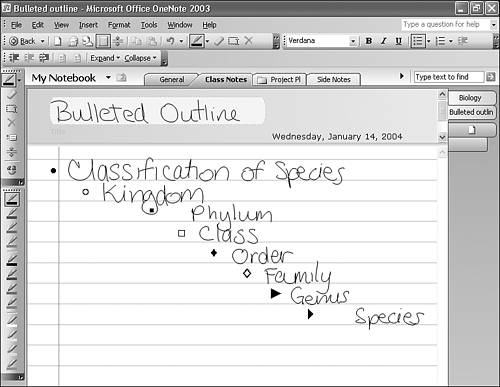 Bulleted outline - Microsoft Office OneNote 2003
File Edit View Insert Format Tools Window Help Type a question for help
Back Verdana B I U
Expand Collapse
My Notebook General Class Notes Project Pl Side Notes Type text to find
Biology
Bulleted outlin
Bulleted Outline
Title
Wednesday, January 14, 2004
Classification of Species
Kingdom
Phylum
Class
Order
Family
Genus
Species